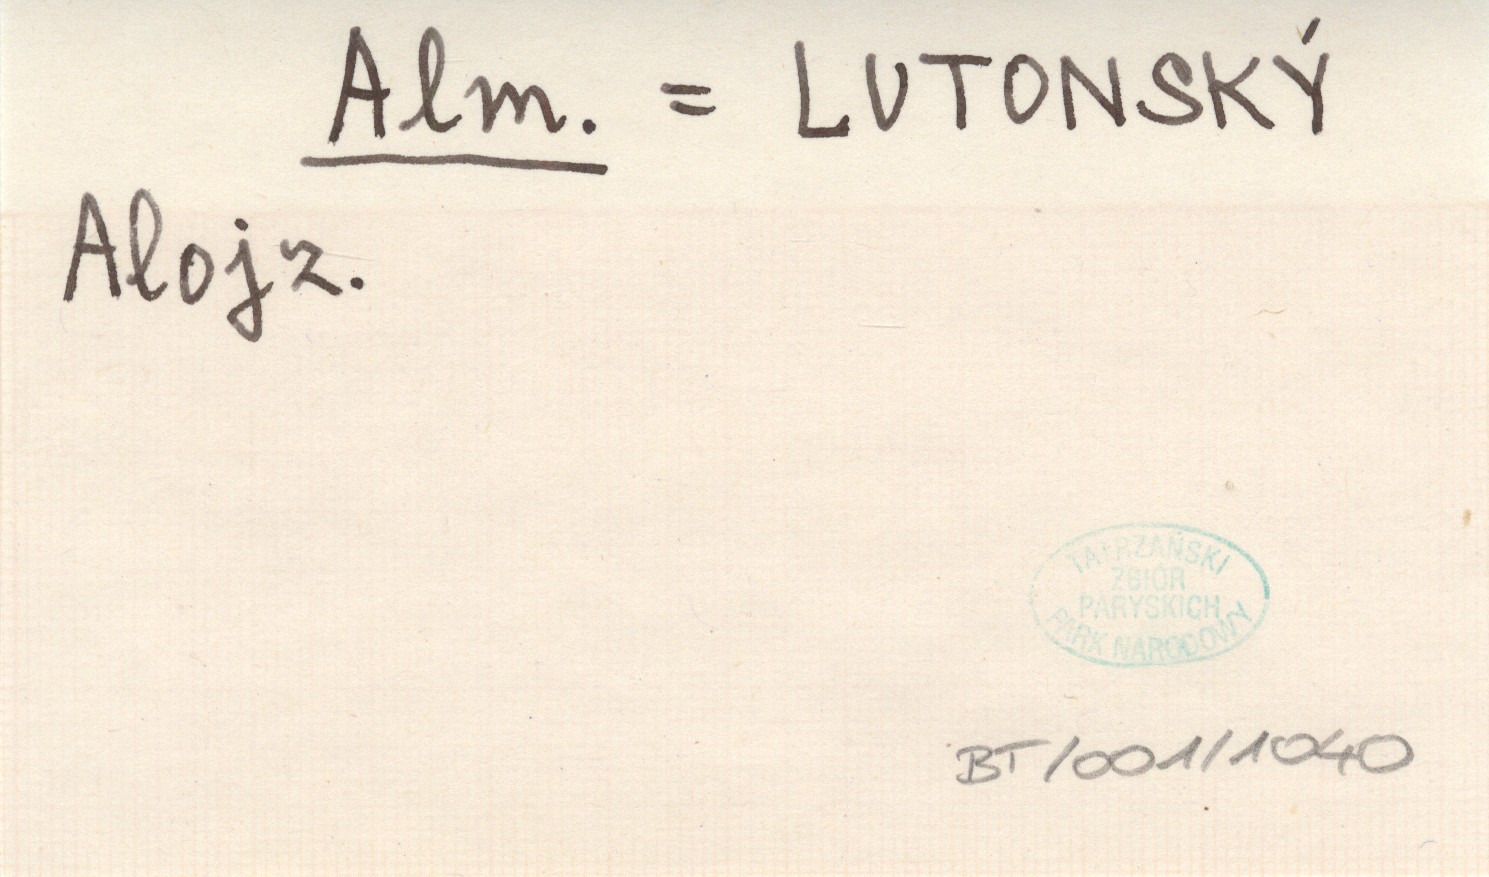 Alm. = LUTONSKÝ
Alojz.
TATRZAŃSKI
ZBIÓR
PARYSKICH
PARK NARODOWY
BT/001/1040